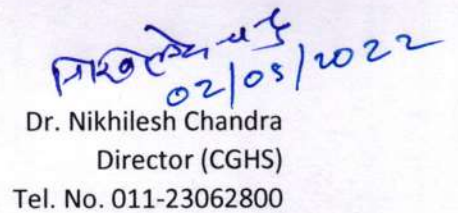 निखिलेश चन्द्र
02/05/2022
Dr. Nikhilesh Chandra
Director (CGHS)
Tel. No. 011-23062800